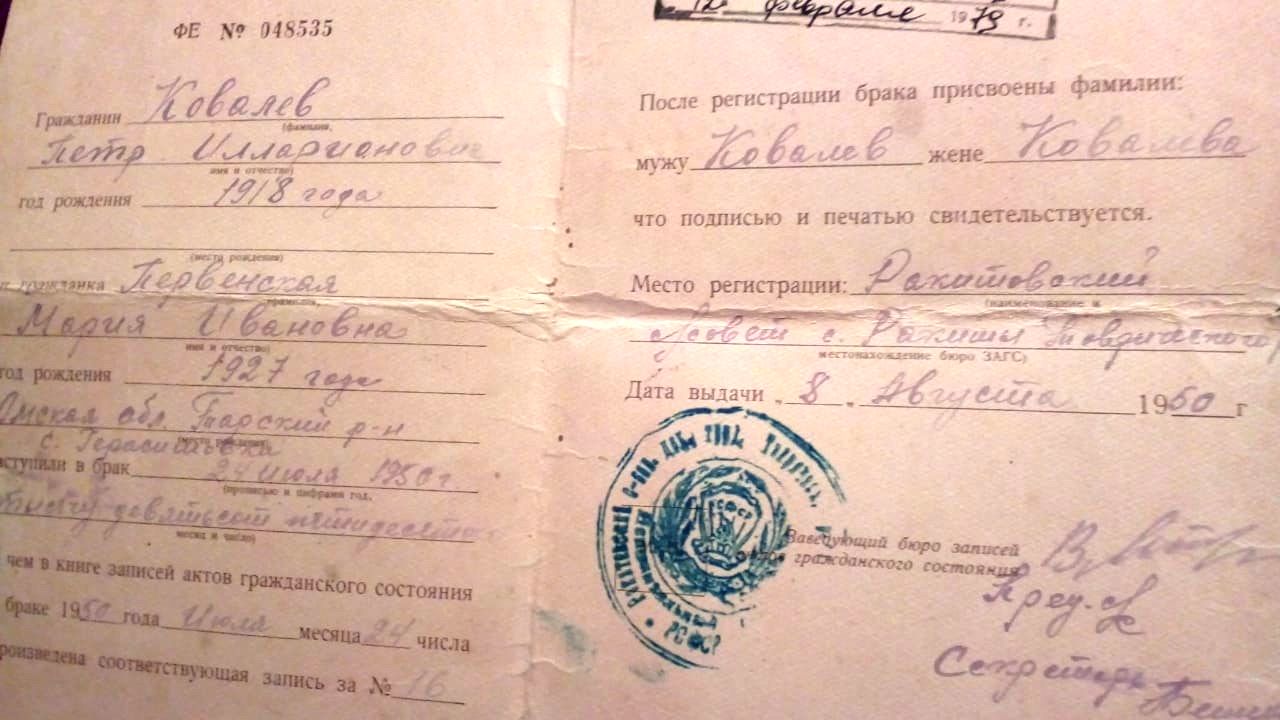 ФЕ № 048535
Гражданин Ковалев
(фамилия,
Петр Илларианович
имя и отчество)
год рождения 1918 года
(место рождения)
гражданка Первенская
фамилия,
Мария Ивановна
имя и отчество)
год рождения 1927 года
Омская обл. Тарский р-н
с.
вступили в брак 24 июля 1950 г
(прописью и цифрами год,
тысяч девятьсот пятидесято
месяц и число)
чем в книге записей актов гражданского состояния
браке 1950 года Июля месяца 24 числа
произведена соответствующая запись за № 16
12 февраля 1979 г.
После регистрации брака присвоены фамилии:
мужу Ковалев жене Ковалева
что подписью и печатью свидетельствуется.
Место регистрации: Рахитовский
(наименование и
с/совет с. Рахиты
местонахождение бюро ЗАГС)
Дата выдачи „ 8 „ Августа 1950 г
РСФСР
Заведующий бюро записей
актов гражданского состояния
Пред. с/с
Секретарь